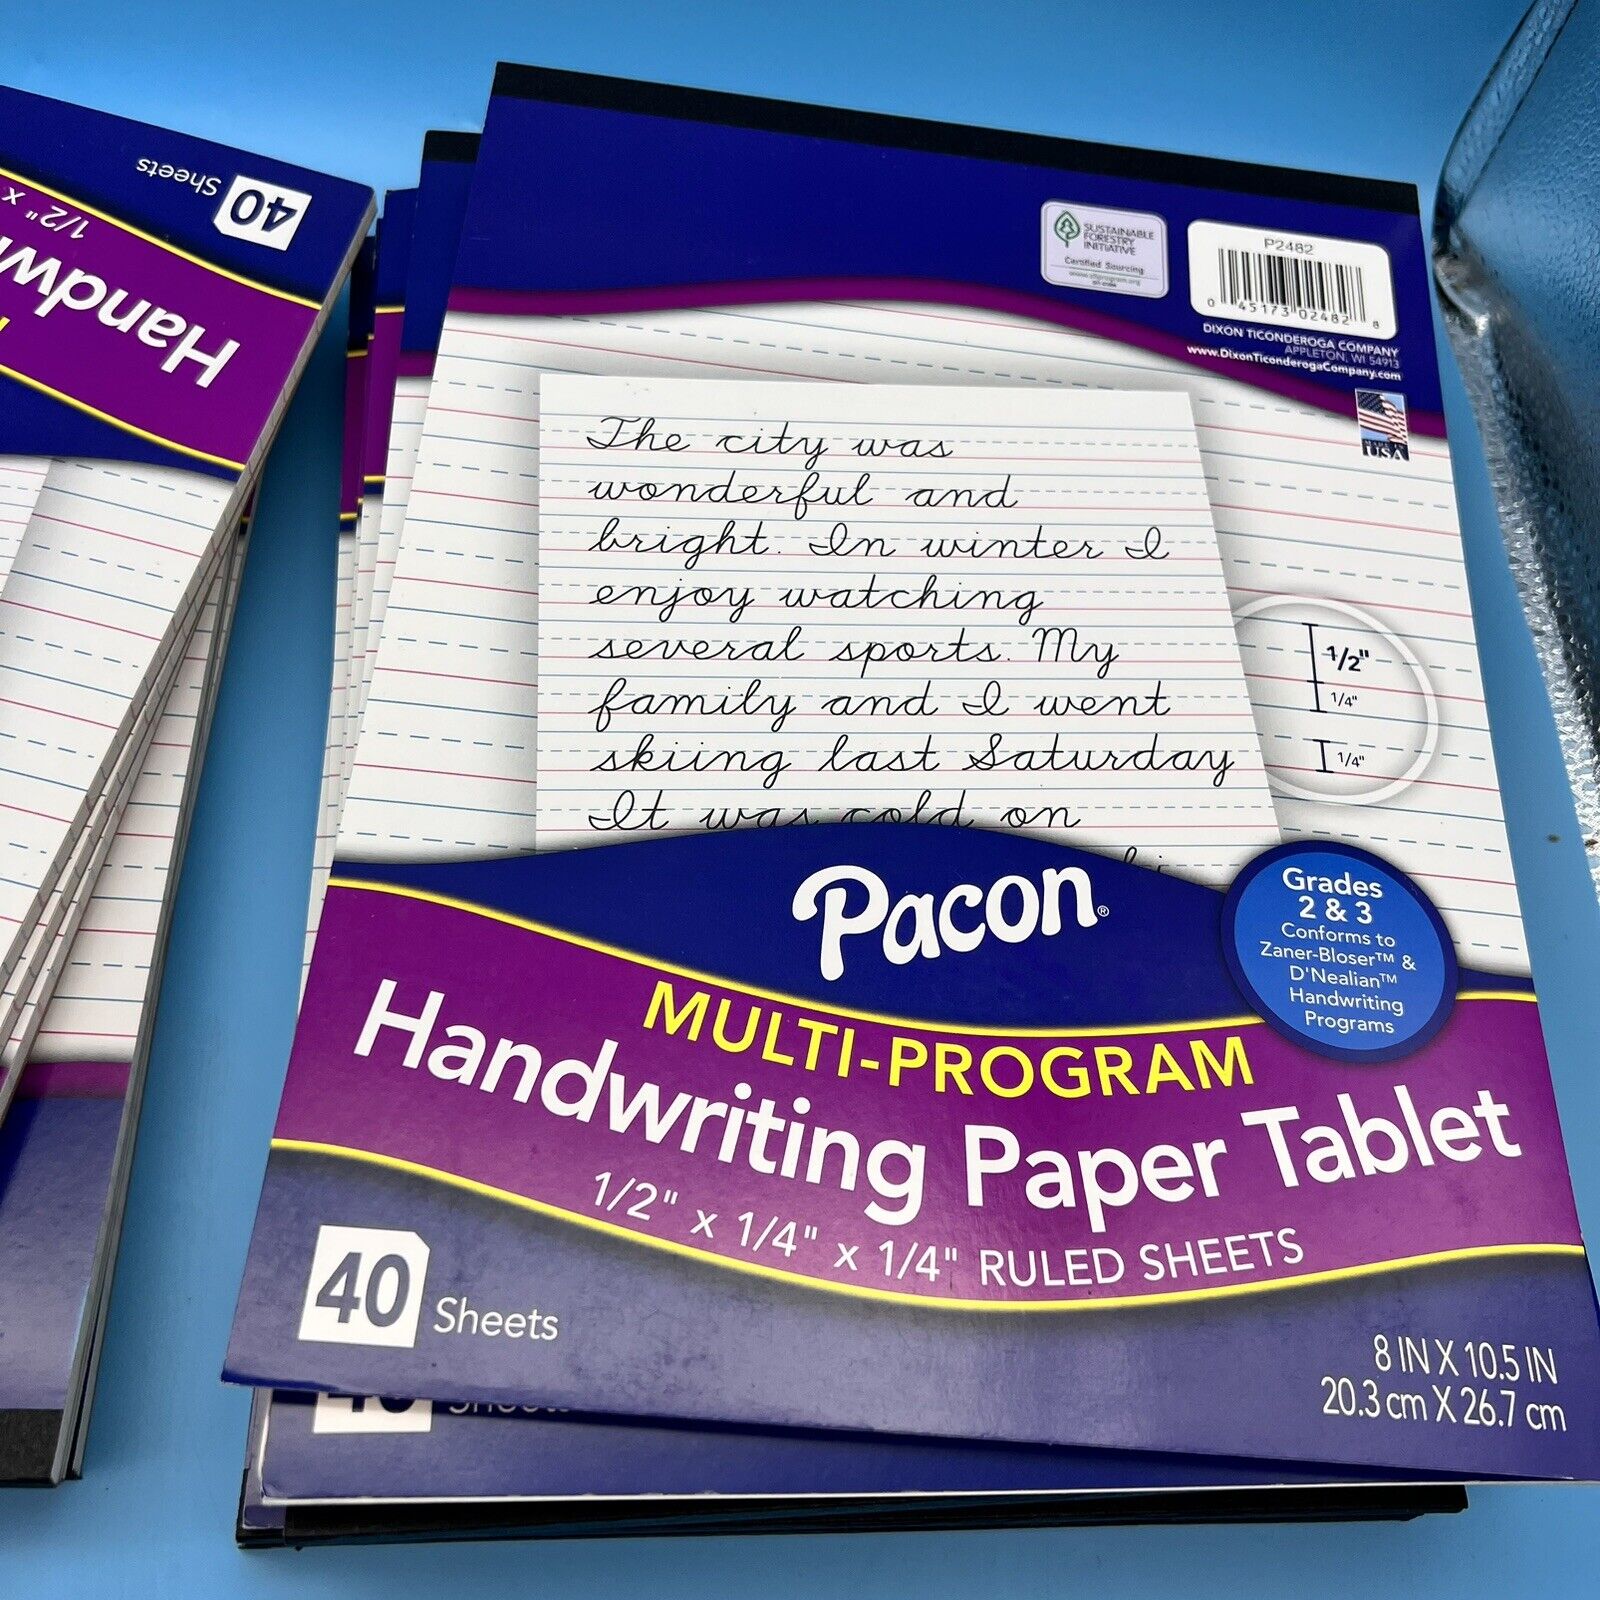 40 Sheets
Handw
1/2" x
SUSTAINABLE
FORESTRY
INITIATIVE
Certified Sourcing
www.sfiprogram.org
P2482
0 45173 02482 8
DIXON TICONDEROGA COMPANY
APPLETON, WI 54913
www.DixonTiconderogaCompany.com
MADE IN
USA
The city was
wonderful and
bright. In winter I
enjoy watching
several sports. My
family and I went
skiing last Saturday
It was cold on
1/2"
1/4"
1/4"
Pacon®
Grades
2 & 3
Conforms to
Zaner-Bloser™ &
D'Nealian™
Handwriting
Programs
MULTI-PROGRAM
Handwriting Paper Tablet
1/2" x 1/4" x 1/4" RULED SHEETS
40 Sheets
8 IN X 10.5 IN
20.3 cm X 26.7 cm
40 Sheets